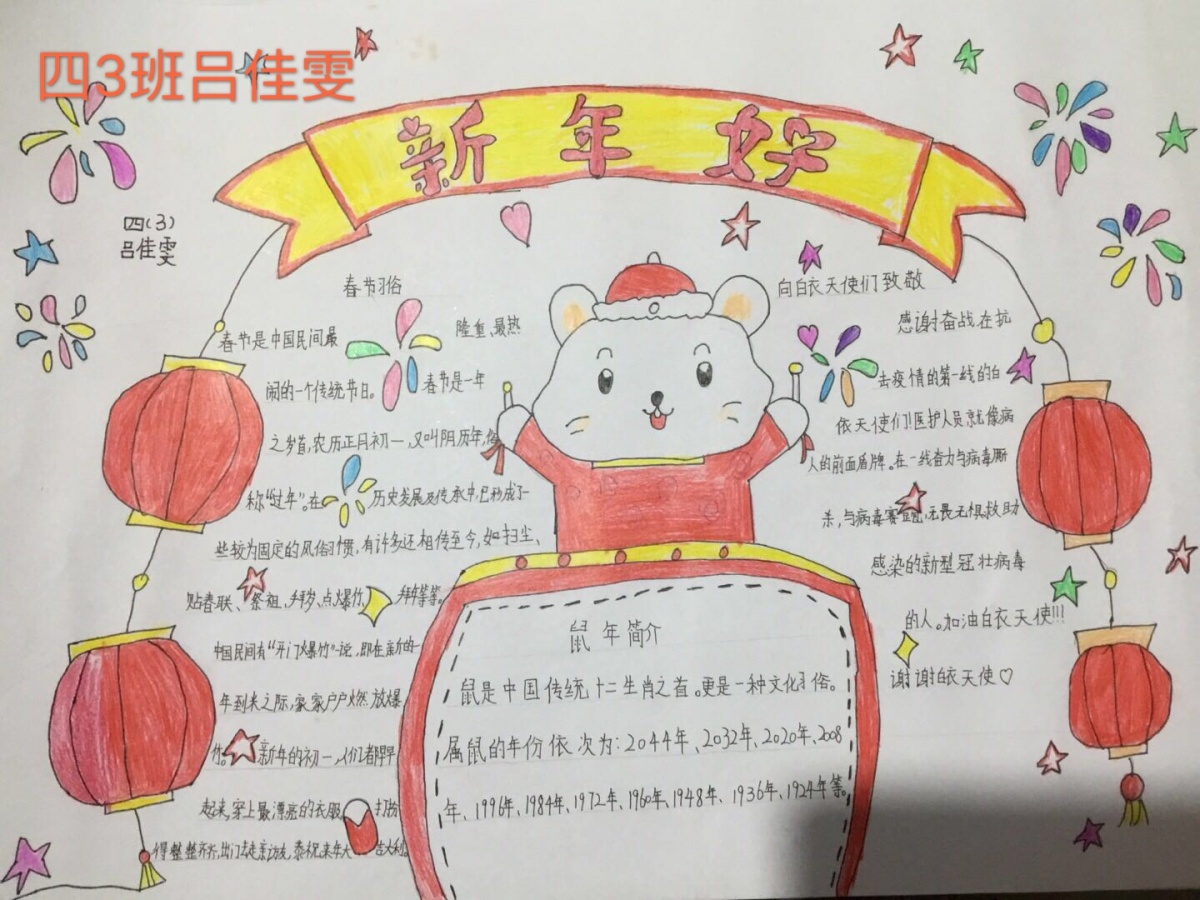 四3班吕佳雯
新年好
四(3)
吕佳雯
春节习俗
春节是中国民间最隆重、最热
闹的一个传统节日。春节是一年
之岁首,农历正月初一,又叫阴历年,俗
称“过年”。在历史发展及传承中,已形成了一
些较为固定的风俗习惯,有许多还相传至今,如扫尘、
贴春联、祭祖、拜岁、点爆竹、拜年等等。
中国民间有“开门爆竹”一说,即在新的一
年到来之际,家家户户燃放爆
竹。新年的初一,人们都早早
起来,穿上最漂亮的衣服,打扮
得整整齐齐,出门去走亲访友,恭祝来年大吉大利。
向白衣天使们致敬
感谢奋战在抗
击疫情的第一线的白
衣天使们!医护人员就像病
人的前面盾牌。在一线奋力与病毒厮
杀,与病毒赛跑,无畏无惧救助
感染的新型冠壮病毒
的人。加油白衣天使!!!
谢谢白衣天使♡
鼠年简介
鼠是中国传统十二生肖之首。更是一种文化习俗。
属鼠的年份依次为:2044年、2032年、2020年、2008
年、1996年、1984年、1972年、1960年、1948年、1936年、1924年等。